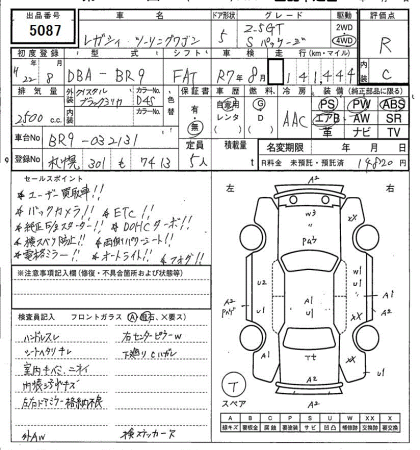 出品番号 車名 ドア形状 グレード 駆動 評価点
5087 レガシィ ツーリングワゴン 5 2.5GT Sパッケージ 2WD 4WD R
初度登録 型式 シフト 車検 走行(km・マイル)
H22-8 DBA-BR9 FAT R7年8月 141,444 C
排気量 外装 クリスタルブラックシリカ カラーNo. D4S 色替 保証書 車歴 燃料 冷房 装備(純正部品に限る)
2500 c.c. 内装 カラーNo. 有・無 自家用 レンタ G D AAC PS PW ABS
エアB AW SR
革 ナビ TV
車台No. BR9-032131 定員 積載量 名変期限 年 月 日
登録No. 札幌 301 も 7413 5人 t R料金 未預託・預託済 14820円
セールスポイント
★ユーザー買取車!!
★バックカメラ!! ★ETC!!
★純正E/gスターター!! ★DOHCターボ!!
★横スベリ防止!! ★両側パワーシート!!
★電格ミラー!! ★オートライト!! ★フォグ!!
※注意事項記入欄(修復・不具合箇所および状態等)
検査員記入 フロントガラス (A・飛石、X要ス)
ハンドルスレ 右センターピラーW
シートヘタリ チレ 下廻りサビハガレ
室内キバミ、ニオイ
内張キズ
左右ドアミラー格納不良
外AW 検ステッカーズ
左 右
A2
W3
XX
U2
A1
U1
A2
T
スペア
A B C P S U W X XX
線キズ 要板金 腐蝕 要塗装 サビ 凹凸 補修跡 要交換 交換跡